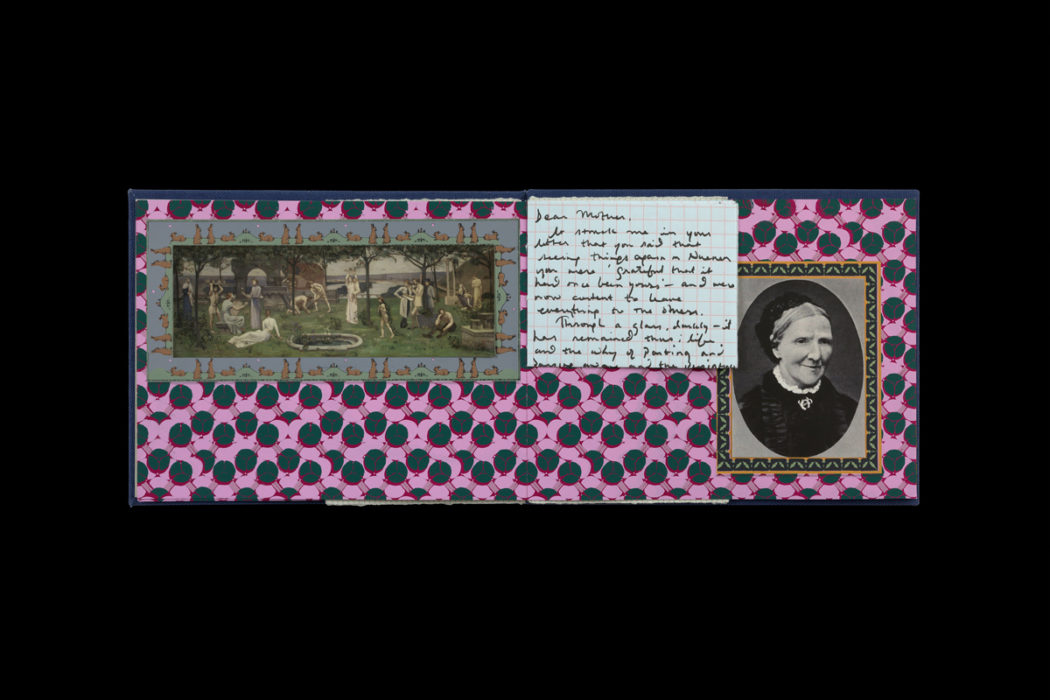 Dear Mother,
It struck me in your
letter that you said that
seeing things again in
you were 'grateful that it
had once been yours' – and were
now content to leave
everything to the others.
Through a glass, darkly – it
has remained thus: life
and the why of Painting and